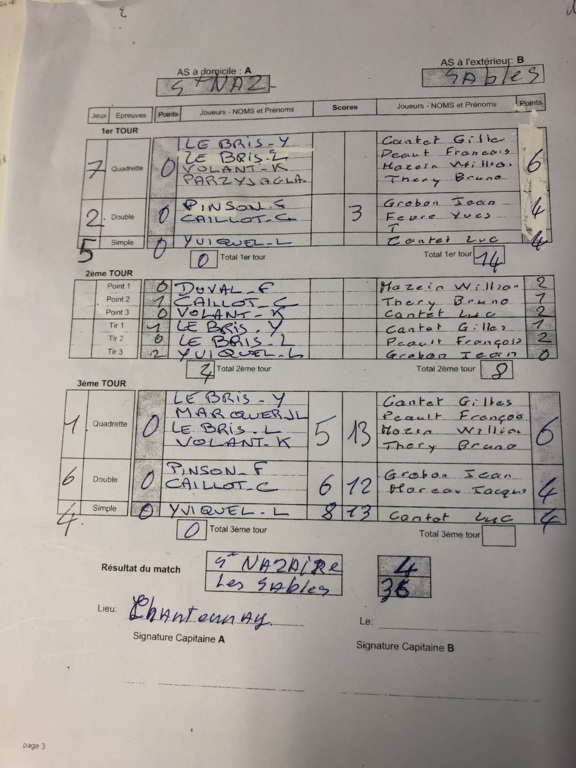 AS à domicile : A
AS à l'extérieur: B
St NAZ
SABLES
Jeux Epreuves Points Joueurs - NOMS et Prénoms Scores Joueurs - NOMS et Prénoms Points
1er TOUR
7 Quadrette 0 LE BRIS-Y Cantet Gilles 6
LE BRIS-L Peaut Francois
VOLANT-K Hazein Willia.
Thery Bruno
2 Double 0 PINSON-S 3 Grobon Jean 4
CAILLOT-C Feuvre Yves
T
5 Simple 0 YVIQUEL-L Cantet Luc 4
0 Total 1er tour Total 1er tour 14
2ème TOUR
Point 1 0 DUVAL-F Hazein Willia- 2
Point 2 1 CAILLOT-C Thery Bruno 1
Point 3 0 VOLANT-K Cantet Luc 2
Tir 1 1 LE BRIS-Y Cantet Gilles 1
Tir 2 0 LE BRIS-L Peault François 2
Tir 3 2 YVIQUEL-L Grobon Jean 0
4 Total 2ème tour Total 2ème tour 8
3ème TOUR
1 Quadrette 0 LE BRIS-Y 5 13 Cantet Gilles 6
MARQUER JL Peault François
LE BRIS-L Hazein Willia.
VOLANT-K Thery Bruno
6 Double 0 PINSON-F 6 12 Grobon Jean 4
CAILLOT-C Moreau Jacqu
4 Simple 0 YVIQUEL-L 8 13 Cantet Luc 4
0 Total 3ème tour Total 3ème tour
Résultat du match St NAZAIRE 4
Les SABLES 36
Lieu: Chantennay Le:
Signature Capitaine A Signature Capitaine B
page 3